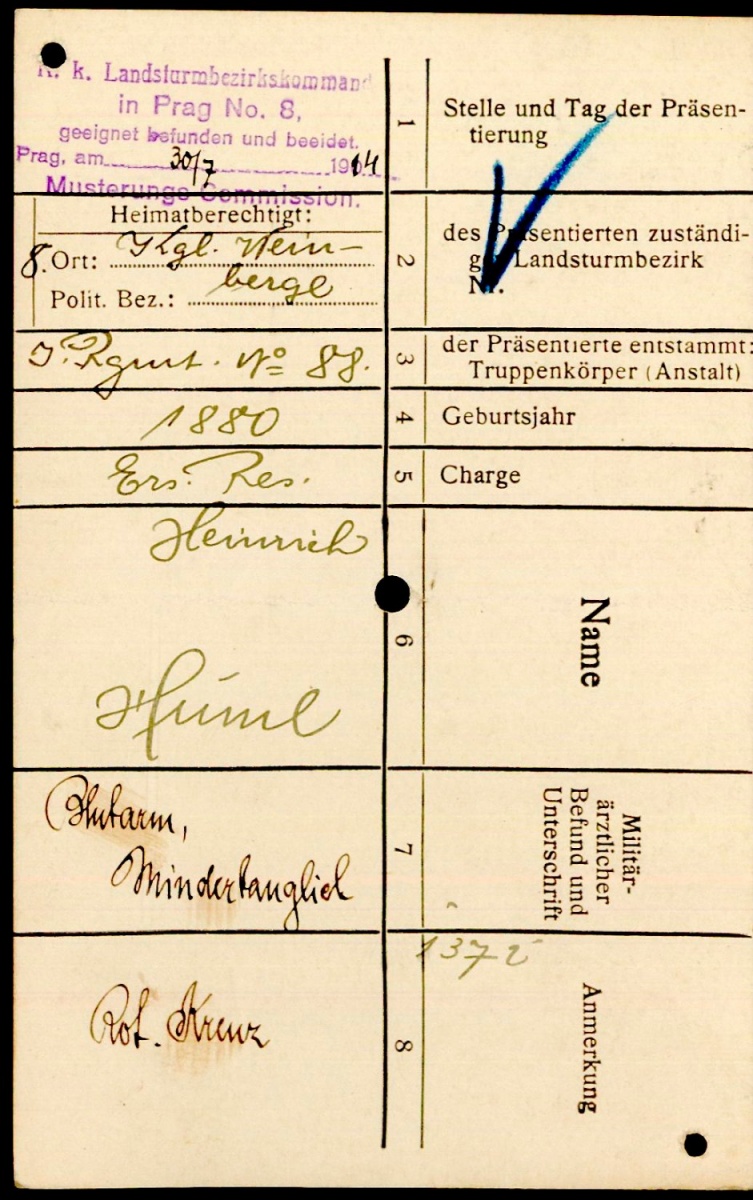 K. k. Landsturmbezirkskommand
in Prag No. 8,
geeignet befunden und beeidet.
Prag, am 30/7 1914
Musterungs Commission.
1
Stelle und Tag der Präsen-
tierung
Heimatberechtigt:
8. Ort: Kgl. Wein-
berge
Polit. Bez.:
2
des Präsentierten zuständi-
gen Landsturmbezirk
Nr.
I. Rgmt. No 88.
3
der Präsentierte entstammt:
Truppenkörper (Anstalt)
1880
4
Geburtsjahr
Ers. Res.
5
Charge
Heinrich
Huml
6
Name
Blutarm,
Mindertauglich
7
Militär-
ärztlicher
Befund und
Unterschrift
1372
Rot. Kreuz
8
Anmerkung